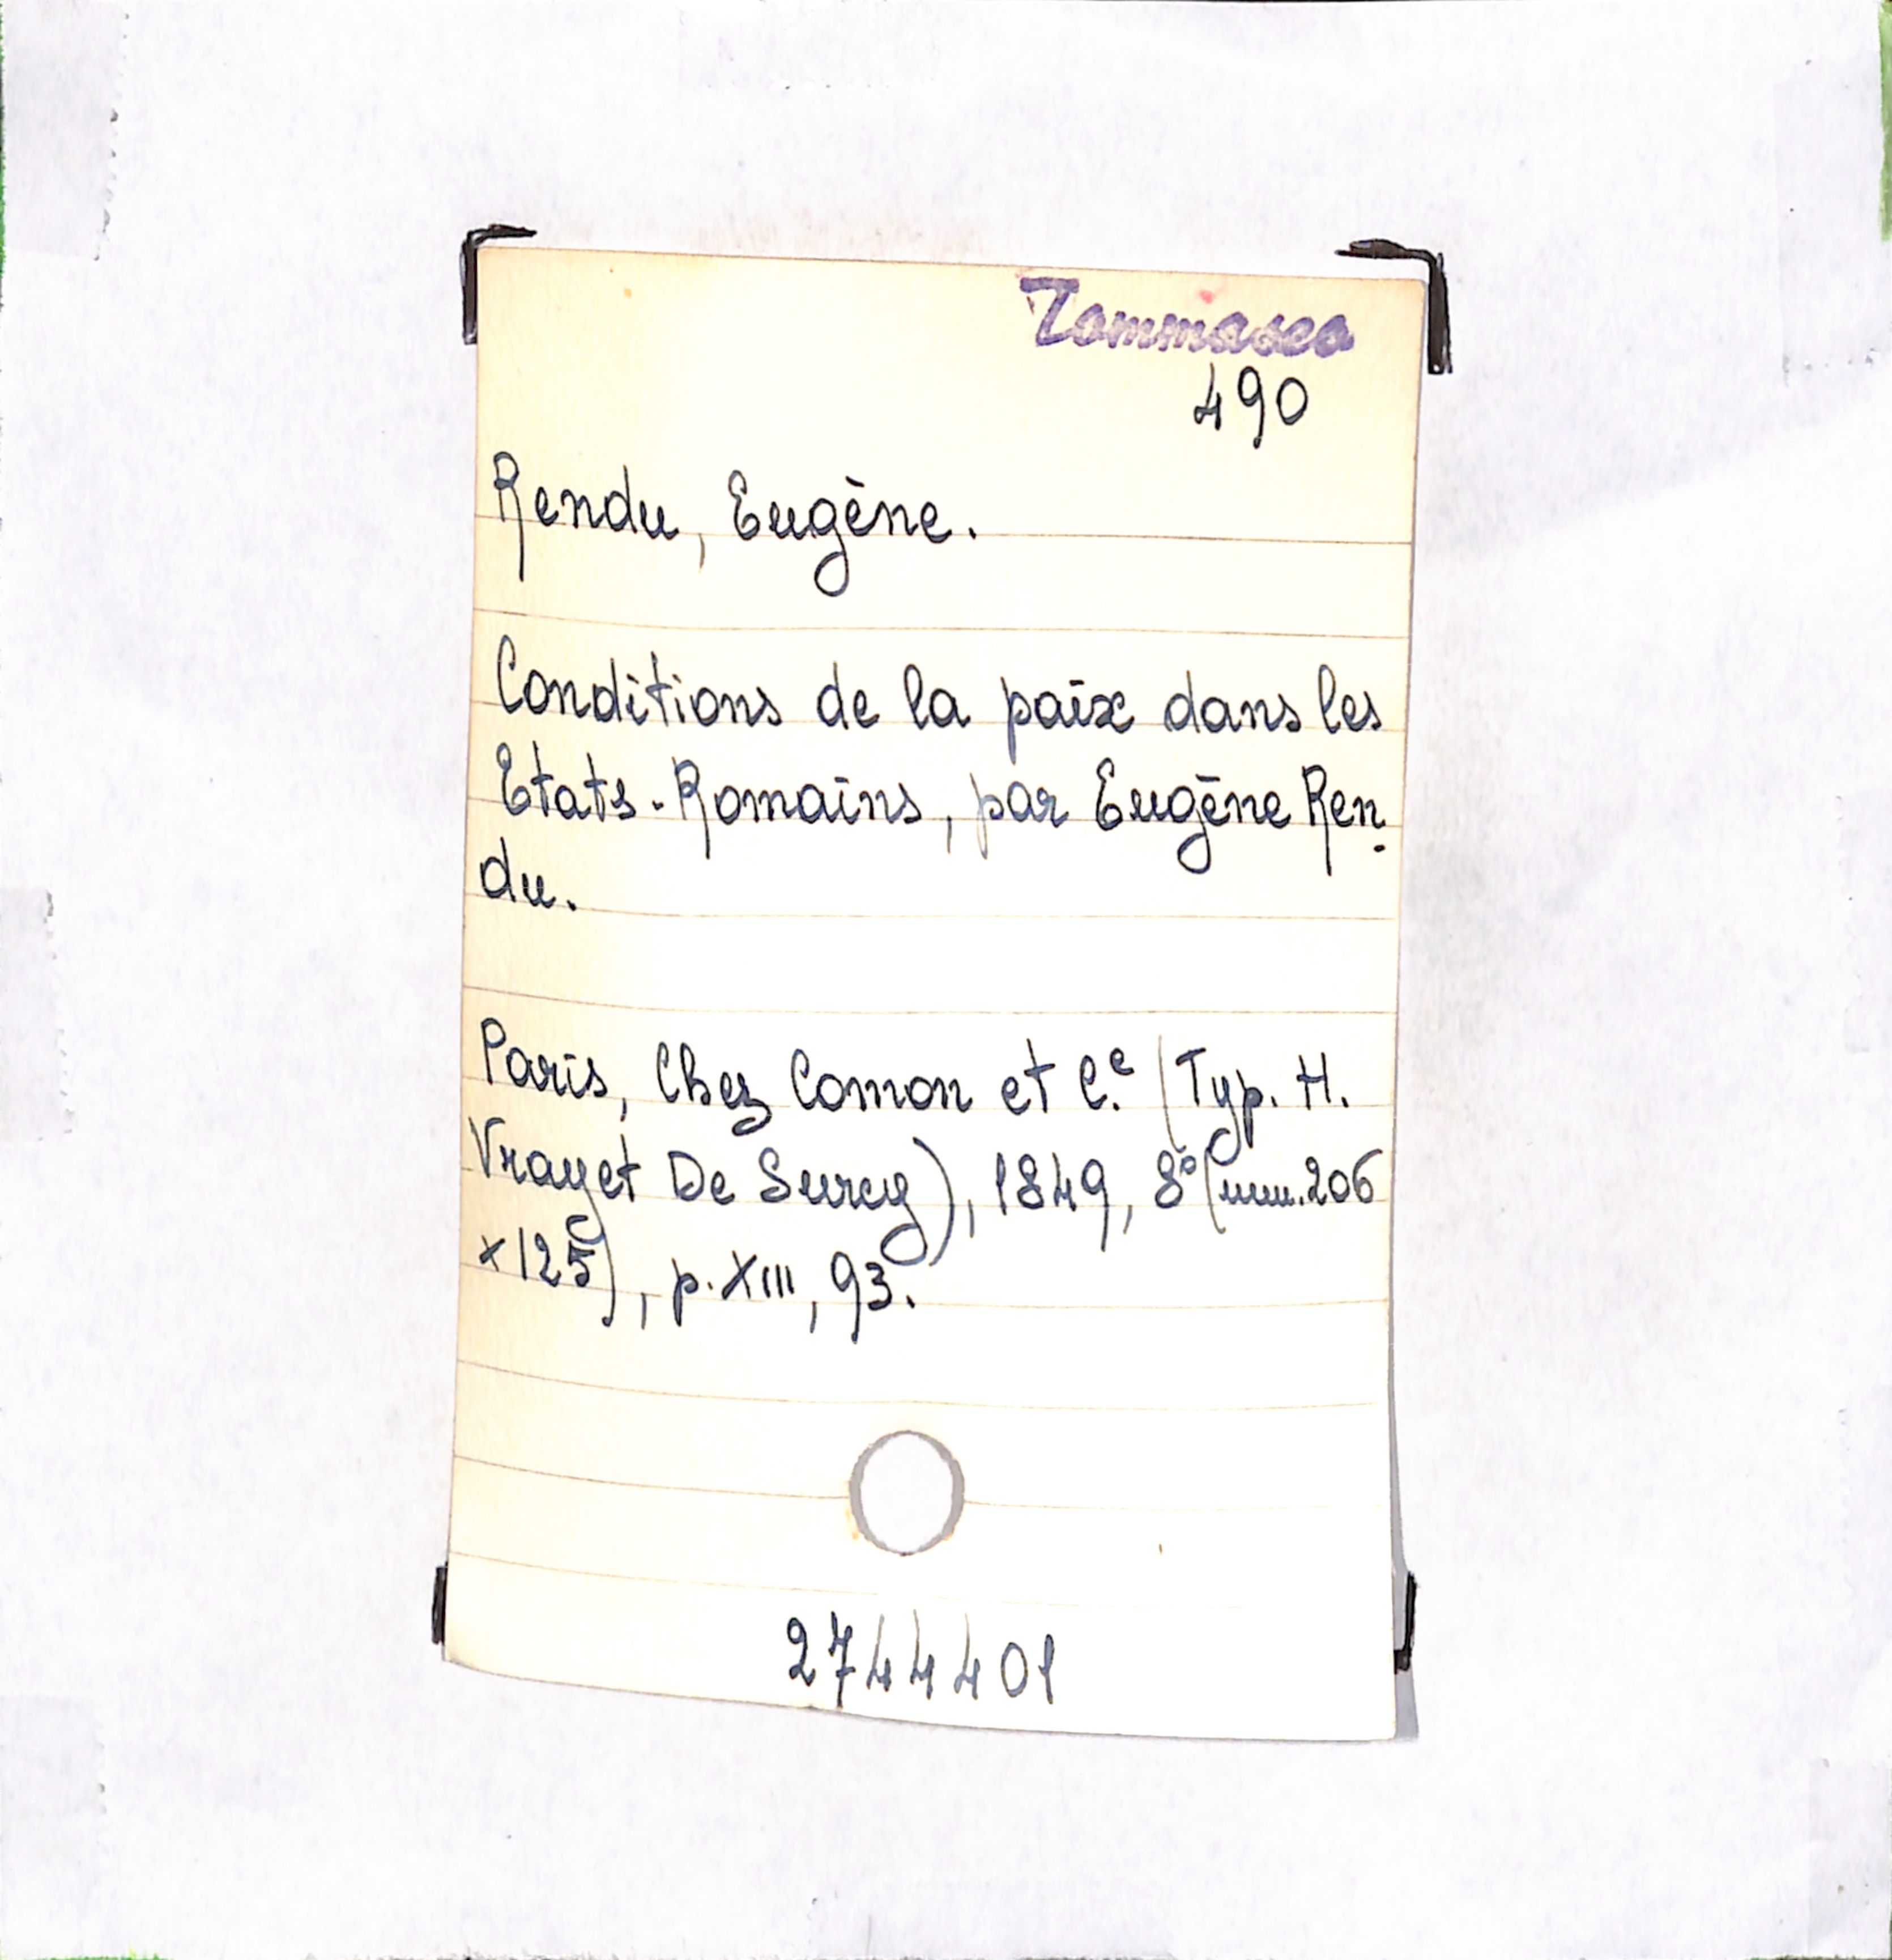 Tommaseo
490
Rendu, Eugène.
Conditions de la paix dans les
Etats-Romains, par Eugène Ren-
du.
Paris, Chez Comon et C.e (Typ. H.
Vrayet De Surcy), 1849, 8° (mm. 206
x125), p. XIII, 93.
2744401